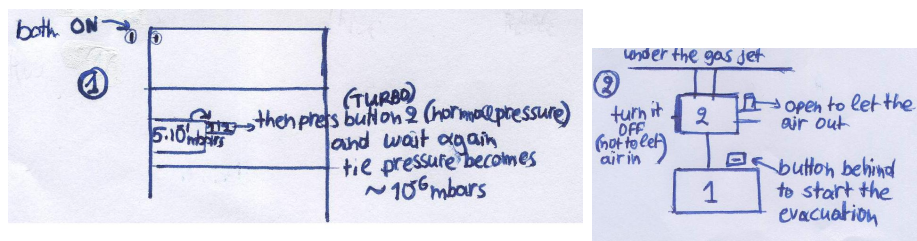 both ON →
①
(TURBO)
then press button 2 (normal pressure)
5·10¹ mbars
and wait again
the pressure becomes
~ 10⁻⁶ mbars
under the gas jet
②
turn it
OFF
(not to let)
air in
2
open to let the
air out
1
button behind
to start the
evacuation